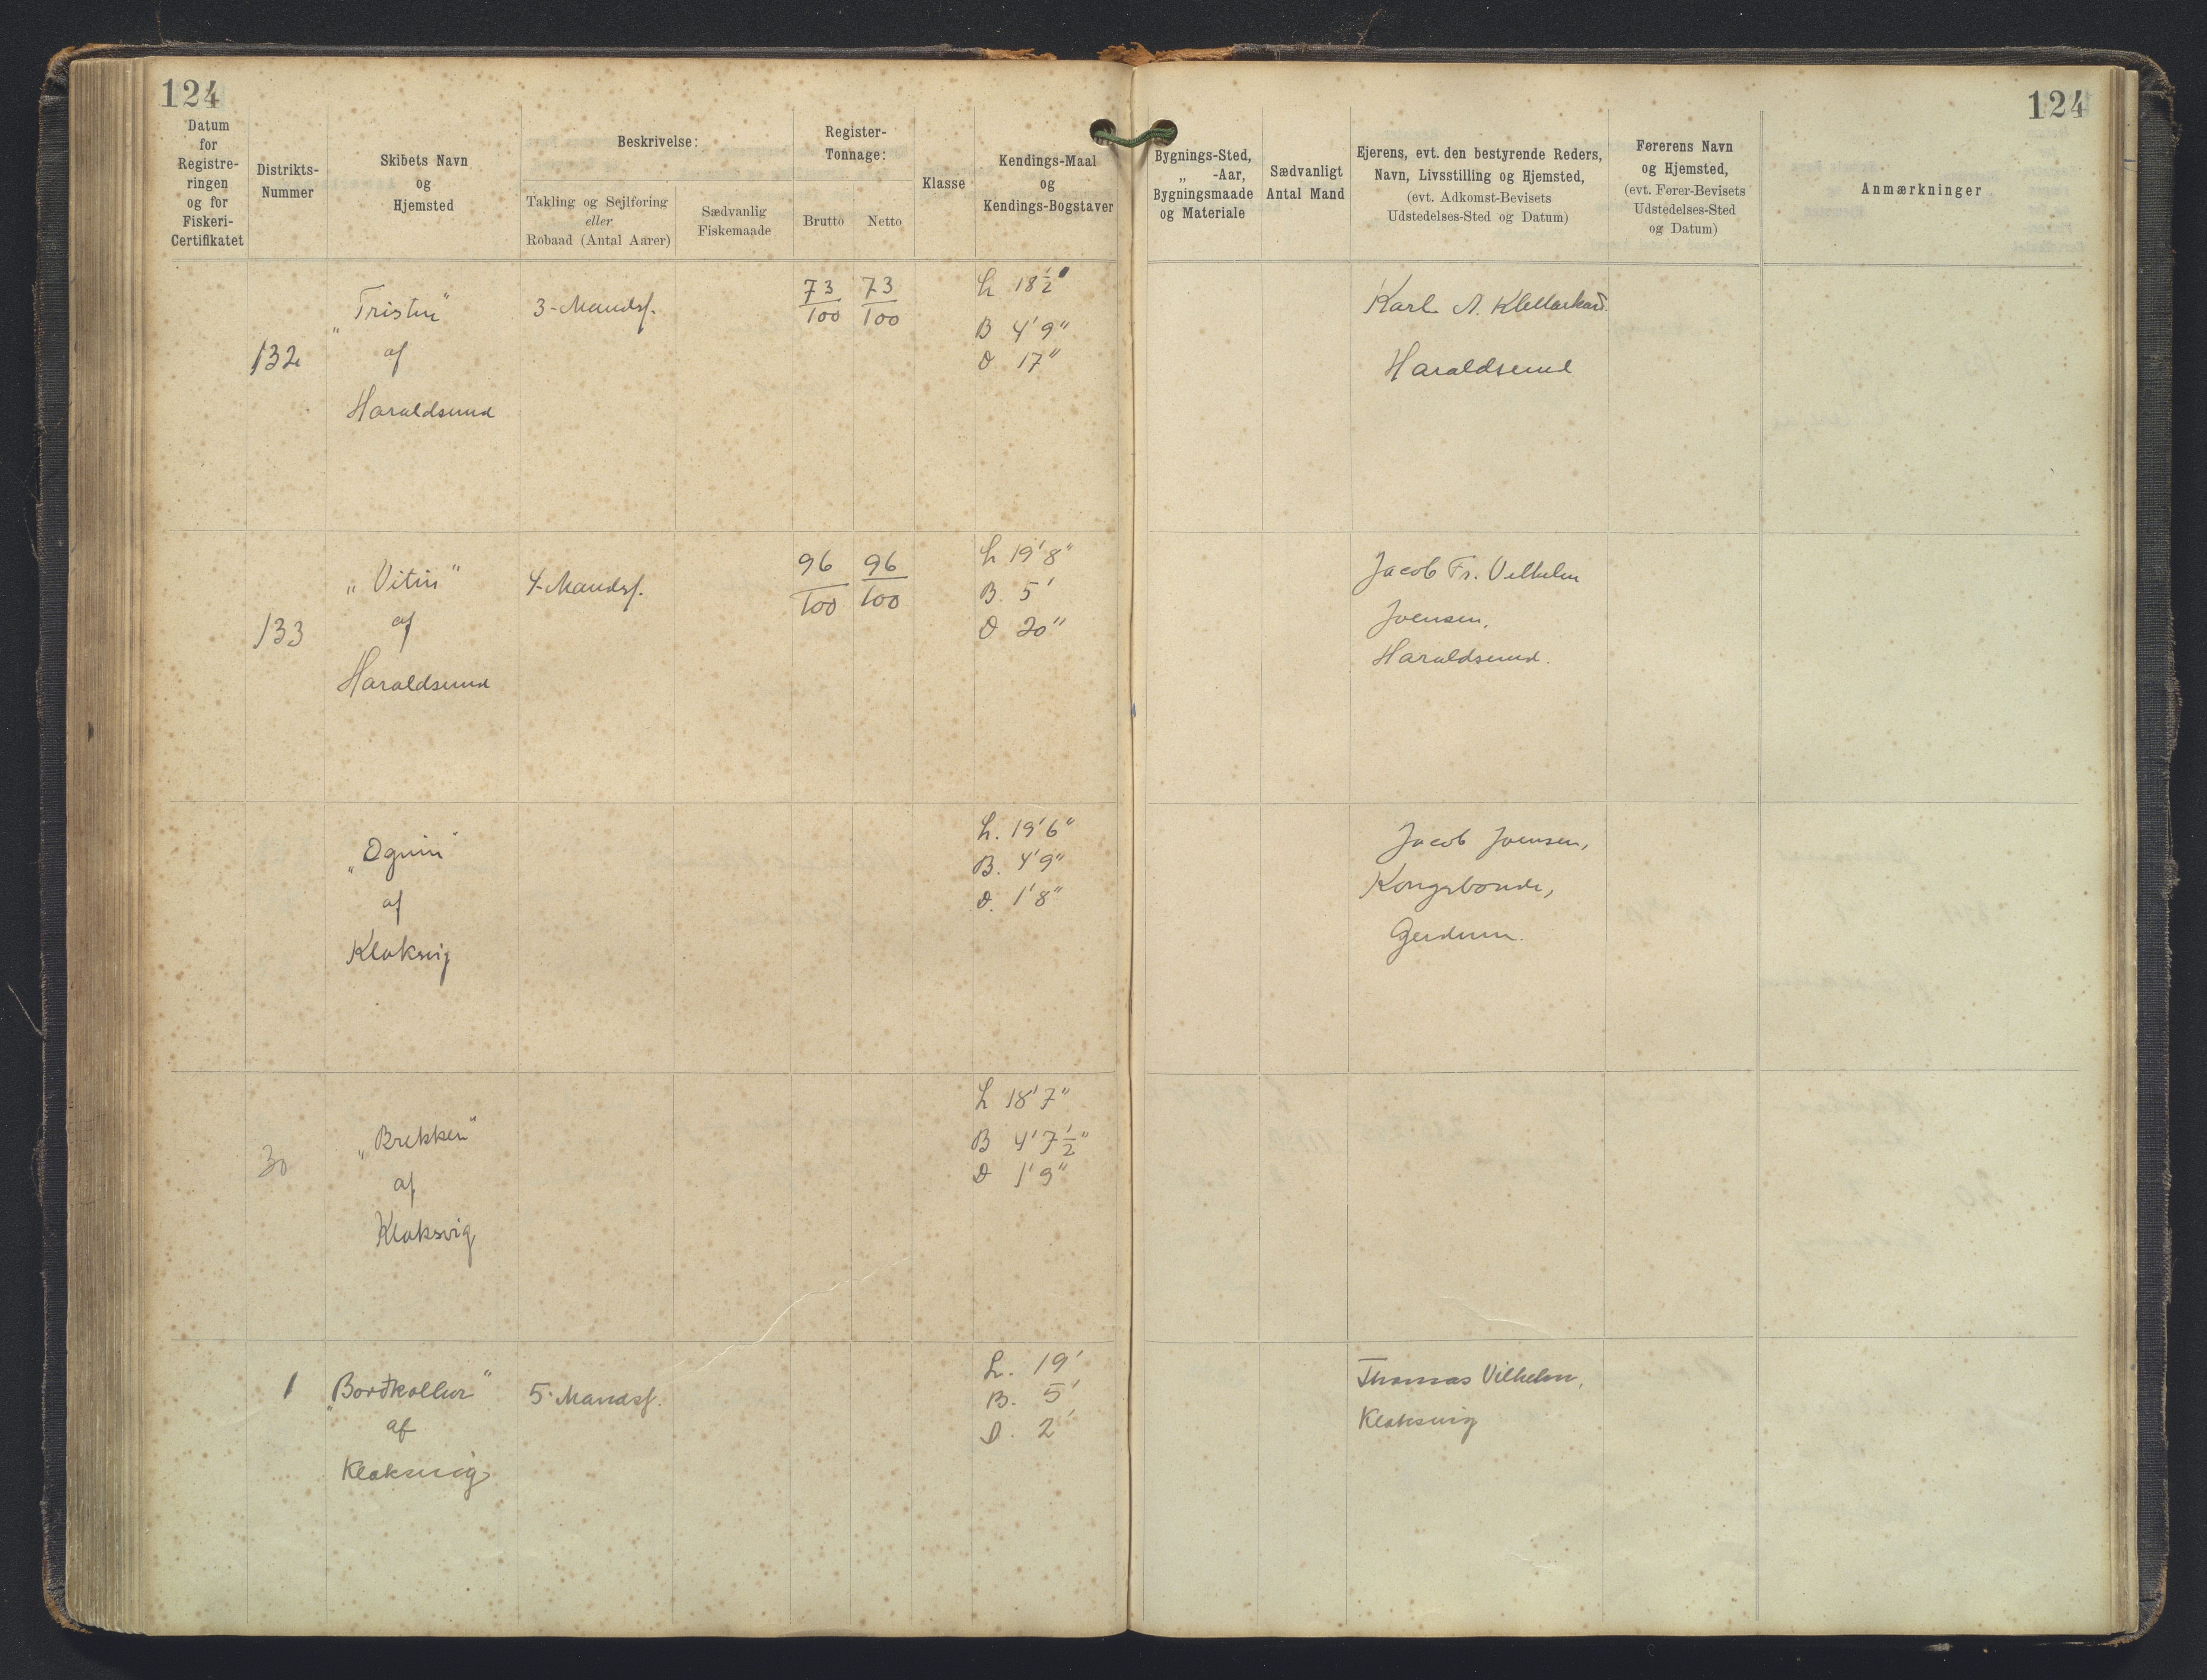 124
124
Datum
for
Registre-
ringen
og for
Fiskeri-
Certifikatet
Distrikts-
Nummer
Skibets Navn
og
Hjemsted
Beskrivelse:
Takling og Sejlføring
eller
Robaad (Antal Aarer)
Sædvanlig
Fiskemaade
Register-
Tonnage:
Brutto
Netto
Klasse
Kendings-Maal
og
Kendings-Bogstaver
Bygnings-Sted,
„ -Aar,
Bygningsmaade
og Materiale
Sædvanligt
Antal Mand
Ejerens, evt. den bestyrende Reders,
Navn, Livsstilling og Hjemsted,
(evt. Adkomst-Bevisets
Udstedelses-Sted og Datum)
Førerens Navn
og Hjemsted,
(evt. Fører-Bevisets
Udstedelses-Sted
og Datum)
Anmærkninger
132
„Tristin"
af
Haraldsund
3-Mandsf.
73/100
73/100
L 18½'
B 4'9"
D 17"
Karl A.
Haraldsund
133
„Vitin"
af
Haraldsund
4-Mandsf.
96/100
96/100
L 19'8"
B. 5'
D 20"
Jacob Fr. Vilhelm
Joensen,
Haraldsund.
„Ognin"
af
Klaksvig
L. 19'6"
B. 4'9"
D. 1'8"
Jacob Joensen,
Kongsbonde,
Gerdum.
30
„Brekken"
af
Klaksvig
L 18'7"
B 4'7½"
D 1'9"
1
„Borðkollur"
af
Klaksvig
5-Mandsf.
L. 19'
B. 5'
D. 2'
Thomas Vilhelm,
Klaksvig